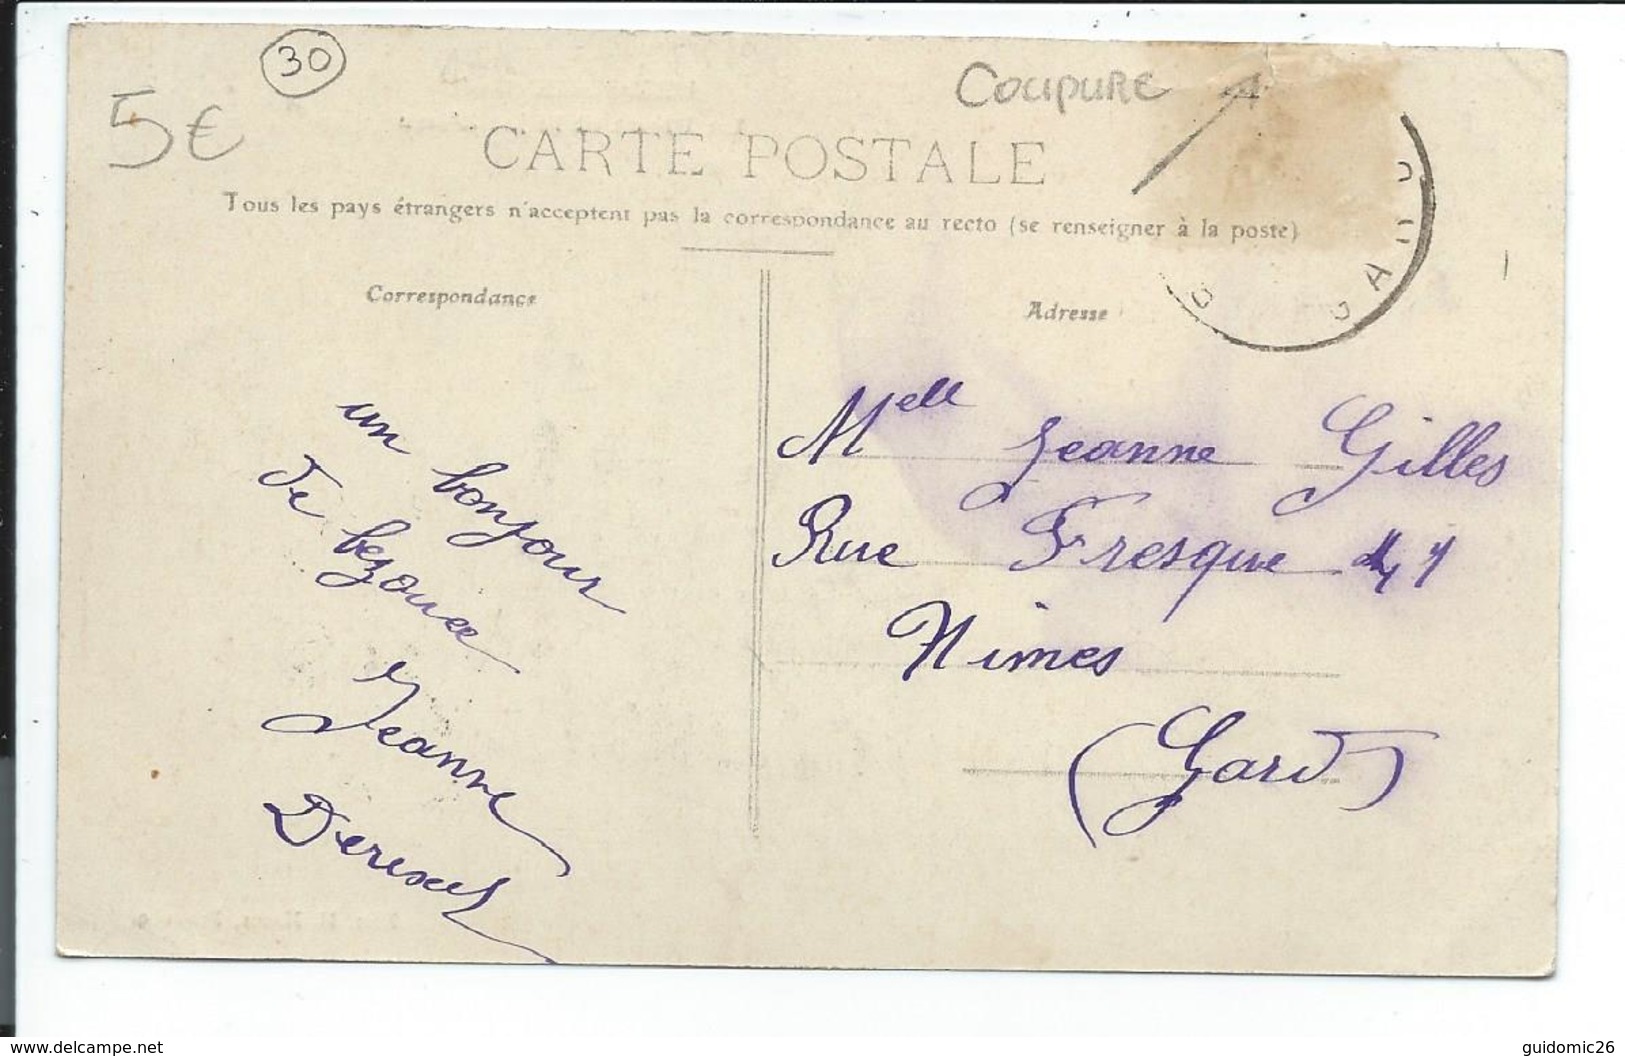 30
5€
COUPURE
CARTE POSTALE
Tous les pays étrangers n'acceptent pas la correspondance au recto (se renseigner à la poste)
Correspondance
Adresse
GARD
un bonjour
de bezouce
Jeanne
Melle Jeanne Gilles
Rue Fresque
Nimes
(Gard)
www.delcampe.net
guidomic26